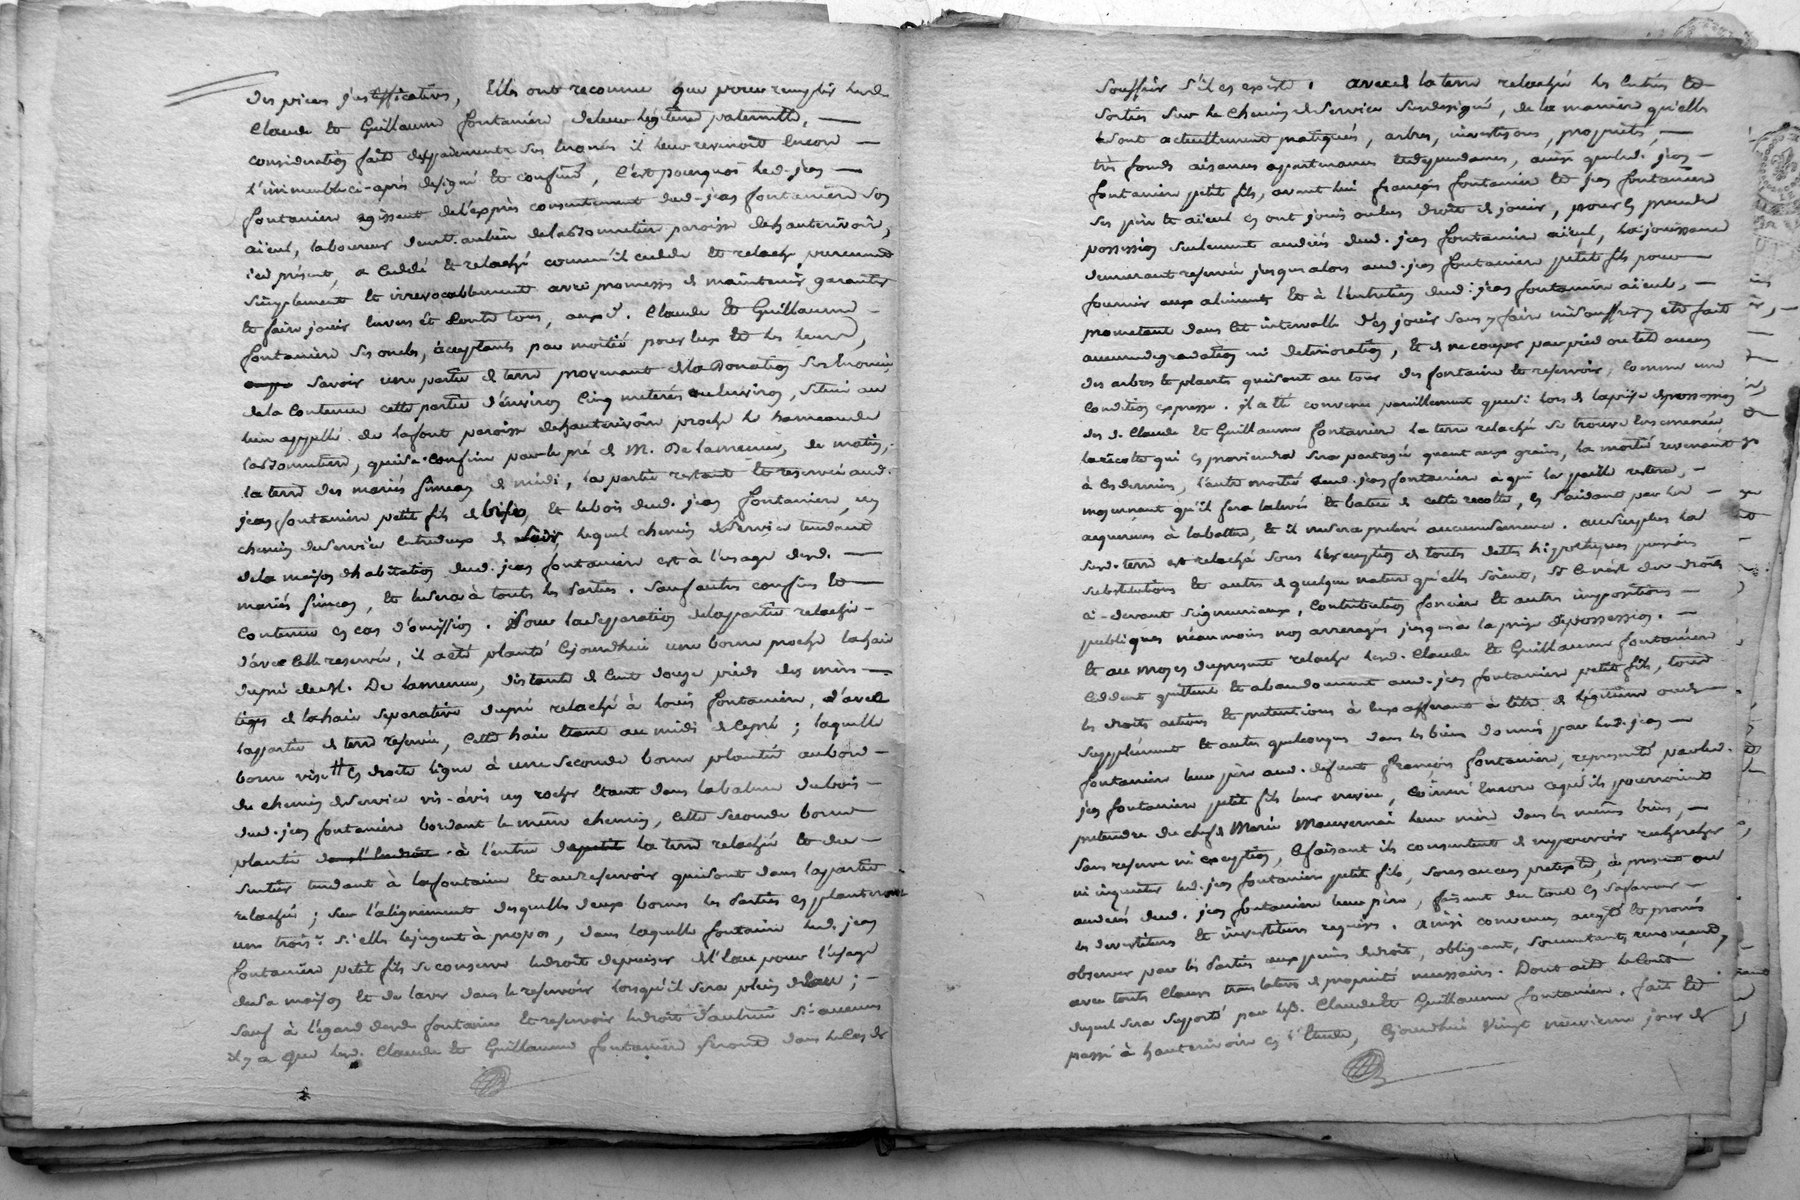 des pieces justifficatives, Elles ont reconnu que pour remplir lesd.
Claude et Guillaume fontanière de leur légitime paternelle,
considération faite des payements sus énoncés il leur revenoit encore
l'immeuble ci-après désigné et confiné, c'est pourquoi led. jean
fontanière agissant de l'exprès consentement dud. jean fontanière son
aïeul, laboureur de la sommetière paroisse de hauterivoire,
ici présent, a ceddé et relaché comme il cedde et relache purement
simplement et irrevocablement avec promesses de maintenir garantir
et faire jouir envers et contre tous, auxd. Claude et Guillaume
fontanière ses oncles, acceptants par moitié pour eux et les leurs,
savoir une partie de terre provenant de la Donation sus énoncée,
de la contenue cette partie d'environ cinq meterés ou environ, située au
lieu appellé de lafont paroisse de hauterivoire proche le hameau de
la sommetière, qui se confine par le pré de M. De lamenue, de matin,
la terre des mariés simean de midi, la partie restante et reservée aud.
jean fontanière petit fils de bise, et le bois dud. jean fontanière, un
chemin de service entredeux de soir, lequel chemin de service tendant
de la maison d'habitation dud. jean fontanière est à l'usage desd.
mariés simean, et le sera à toutes les parties. Sauf autres confins et
contenue en cas d'omission. Pour la separation de la partie relachée
d'avec celle reservée, il a été planté cejourdhui une borne proche la haie
du pré de M. De lamenue, distante de cent douze pieds des mêmes
tiges de la haie séparative du pré relaché à louis fontanière, d'avec
la partie de terre reservée, cette haie étant au midi de ce pré ; laquelle
borne vise en droite ligne à une seconde borne plantée au bord
du chemin de service vis-avis un rocher étant dans la balme du bois
dud. jean fontanière bordant le même chemin, cette seconde borne
plantée à l'entrée de la terre relachée et du
sentier tendant à la fontaine et au reservoir qui sont dans la partie
relachée ; sur l'alignement desquelles deux bornes les Parties en planteront
une trois.e si elles le jugent à propos, dans laquelle fontaine led. jean
fontanière petit fils se conserve le droit de puiser de l'eau pour l'usage
de sa maison et de laver dans le reservoir lorsqu'il sera plein d'eau ;
sauf à l'égard desd. fontaine et reservoir le droit d'autrui si aucun
il y a que lesd. Claude et Guillaume fontanière seront dans le cas de
souffrir s'il en existe. avec la terre relachée les entrées et
sorties sur le chemin de Service susdesigné, de la manière qu'elles
sont actuellement pratiquées, arbres, investisons, propriétés,
très fonds aisances appartenances et dependances, ainsi que led. jean
fontanière petit fils, avant lui françois fontanière et jean fontanière
ses père et aïeul en ont joui ou eu droit de jouir, pour en prendre
possession seulement au décès dud. jean fontanière aïeul, la jouissance
demeurant reservée jusques alors aud. jean fontanière petit fils pour
fournir aux aliments et à l'entretien dud. jean fontanière aïeul,
promettant dans cet intervalle d'en jouir sans y faire ni souffrir y etre fait
aucune degradation ni déterioration, et de ne couper par pied ou tete aucun
des arbres et plants qui sont autour des fontaine et reservoir, comme une
condition expresse. il a été convenu pareillement que si lors de la prise de possession
des d. Claude et Guillaume fontanière la terre relachée se trouve ensemencée
la récolte qui en proviendra sera partagée quant aux grains, la moitié revenant
à ces derniers, l'autre moitié aud. jean fontanière à qui la paille restera,
moyennant qu'il fera la levée et battue de cette recolte, en s'aidant par les
acquereurs à la battre, et il ne sera prelevé aucune semence. au surplus la
susd. terre est relachée sous l'exemption de toutes dettes hipotheques pensions
substitutions et autres de quelque nature qu'elles soient, si ce n'est des droits
ci-devant seigneuriaux, contribution foncière et autres impositions
publiques néanmoins nos arrerages jusqu'à la prise de possession.
Et au moyen du present relache lesd. Claude et Guillaume fontanière
ceddent quittent et abandonnent aud. jean fontanière petit fils, tous
les droits actions et pretentions à eux afferants à titre de légitime ou de
supplément et autres quelconques dans les biens donnés par led. jean
fontanière leur père aud. défunt françois fontanière, représenté par led.
jean fontanière petit fils leur neveu, comme encore ce qu'ils pourroient
pretendre du chef de Marie Mauvernai leur mère dans les mêmes biens,
sans reserve ni exception, ce faisant ils consentent de ne pouvoir rechercher
ni inquiéter led. jean fontanière petit fils, sous aucun pretexte, à present ou
au décès dud. jean fontanière leur père, faisant du tout en sa faveur
les devestitures et investitures requises. Ainsi convenu accepté et promis
observer par les Parties aux peines de droit, obligeant, soumettants, renonçants,
avec toutes clauses translatives de propriété necessaires. Dont acte le cout
duquel sera supporté par lesd. Claude et Guillaume fontanière. fait et
passé à hauterivoire en l'Etude, Cejourdhui vingt neuvieme jour de